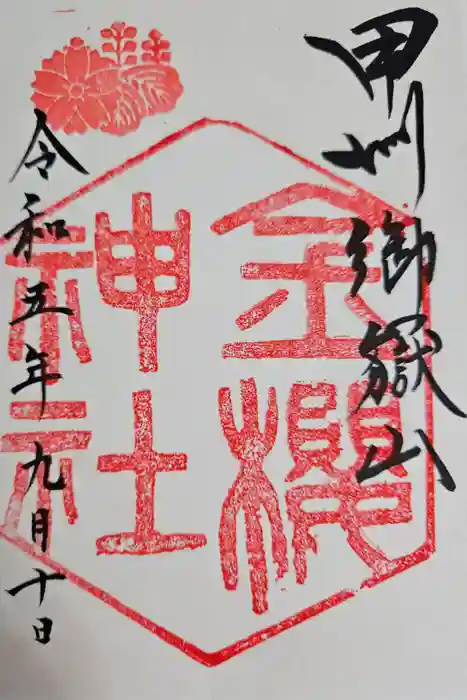 甲州御嶽山
金櫻
神社
令和五年九月十日